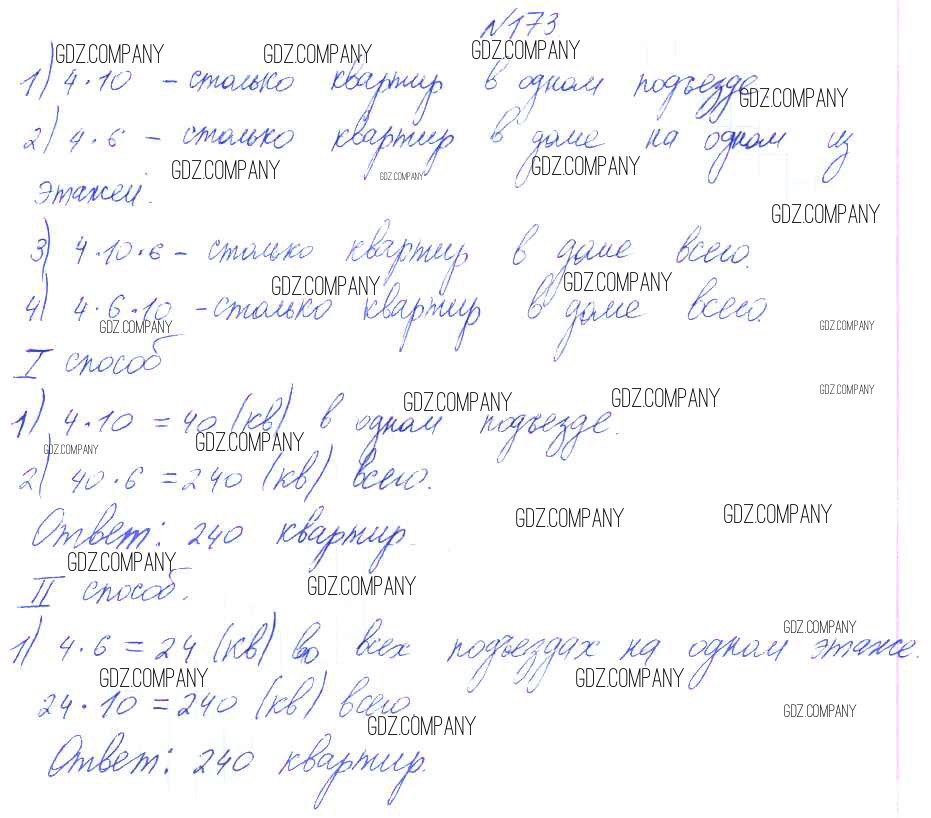 №173
GDZ.COMPANY GDZ.COMPANY GDZ.COMPANY
1) 4·10 – столько квартир в одном подъезде
GDZ.COMPANY
2) 4·6 – столько квартир в доме на одном из
GDZ.COMPANY GDZ.COMPANY GDZ.COMPANY
этажей.
GDZ.COMPANY
3) 4·10·6 – столько квартир в доме всего.
GDZ.COMPANY GDZ.COMPANY
4) 4·6·10 – столько квартир в доме всего.
GDZ.COMPANY GDZ.COMPANY
I способ
GDZ.COMPANY GDZ.COMPANY GDZ.COMPANY
1) 4·10 = 40 (кв) в одном подъезде.
GDZ.COMPANY GDZ.COMPANY
2) 40·6 = 240 (кв) всего.
GDZ.COMPANY GDZ.COMPANY
Ответ: 240 квартир.
GDZ.COMPANY GDZ.COMPANY
II способ.
GDZ.COMPANY
1) 4·6 = 24 (кв) во всех подъездах на одном этаже.
GDZ.COMPANY GDZ.COMPANY
24·10 = 240 (кв) всего.
GDZ.COMPANY GDZ.COMPANY
Ответ: 240 квартир.